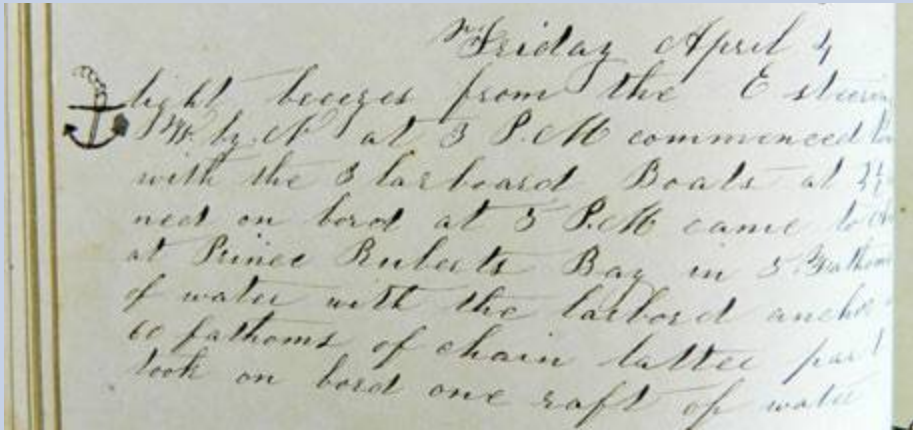 Friday April 4
light breezes from the E steering
W by N at 3 P.M commenced
with the 3 larboard Boats at
ned on bord at 5 P.M came to
at Prince Ruberts Bay in 5 Fathoms
of water with the larbord anchor
60 fathoms of chain lattee part
took on bord one raft of water